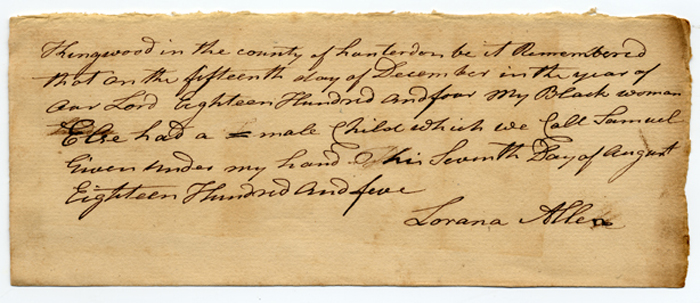 Kingwood in the county of hunterdon be it Remembered
that on the fifteenth day of December in the year of
our Lord Eighteen Hundred and four My Black woman
Else had a male Child which we Call Samuel
Given under my hand this Seventh Day of August
Eighteen Hundred and five
Lorana Allen